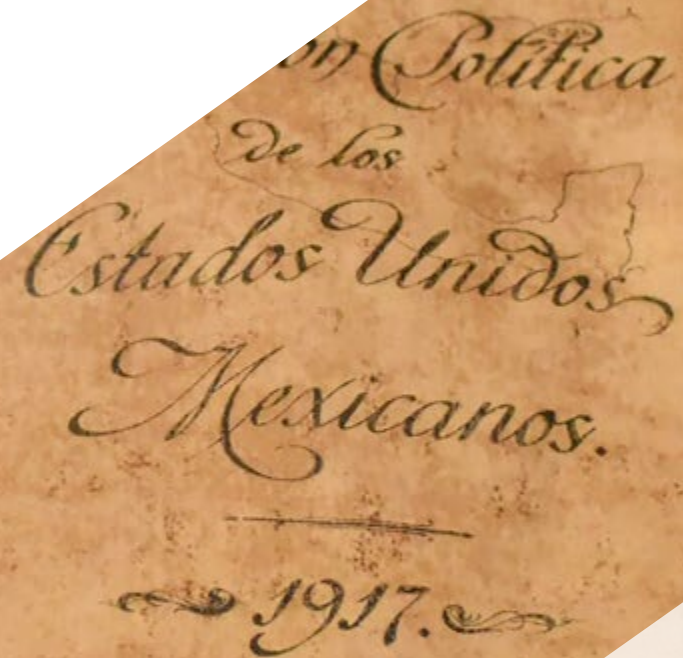 on Política
de los
Estados Unidos
Mexicanos.
1917.